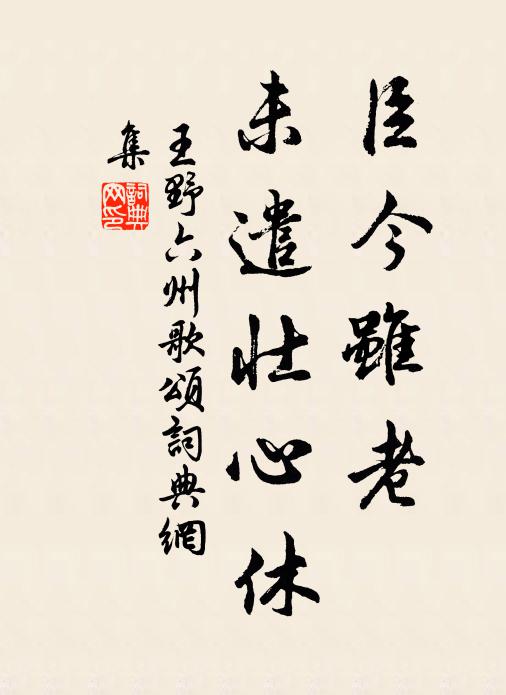 臣今雖老
未遣壯心休
王野六州歌頌詞典網
集
詞典網印